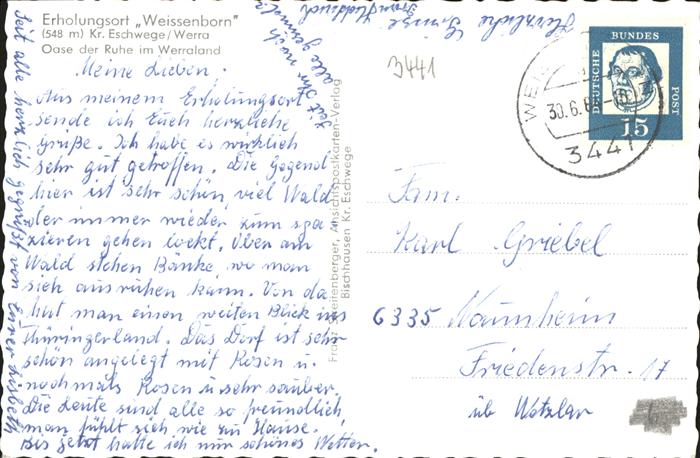 Erholungsort „Weissenborn"
(548 m) Kr. Eschwege/Werra
Oase der Ruhe im Werraland
Meine Lieben,
Aus meinem Erholungsort
sende ich Euch herzliche
Grüße. Ich habe es wirklich
sehr gut getroffen. Die Gegend
hier ist sehr schön, viel Wald
der immer wieder zum spa
zieren gehen lockt. Über am
Wald stehen Bänke, wo man
sich ausruhen kann. Von da
hat man einen weiten Blick ins
Thüringerland. Das Dorf ist sehr
schön angelegt mit Rosen u.
nochmals Rosen u. sehr sauber.
Die Leute sind alle so freundlich,
man fühlt sich wie zu Hause.
Bis jetzt hatte ich nur schönes Wetter.
Seit alle herzlich gegrüßt von Eurer Lisbeth
Seit Ihr noch
alle gesund?
Herzliche Grüße
Frau
Bischhausen Kr. Eschwege
Ansichtspostkarten-Verlag
3441
DEUTSCHE
BUNDES
POST
15
30.6.
3441
Fam.
Karl Griebel
6335 Naunheim
Friedenstr. 17
üb Wetzlar